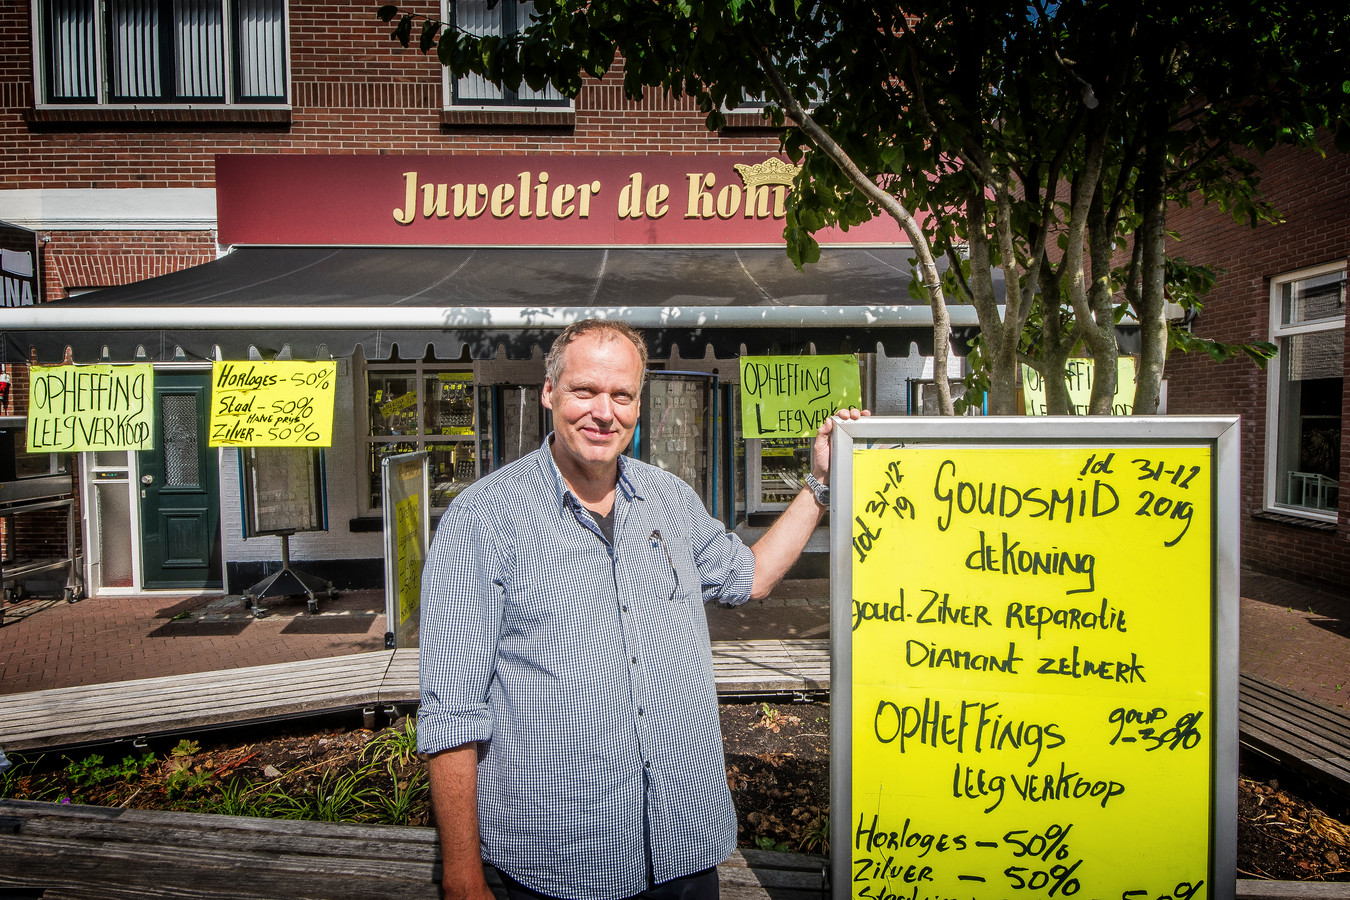 Juwelier de Koni
INA
OPHEFFING
LEEGVERKOOP
Horloges - 50%
Staal - 50%
HANG PRIJS
ZILVER - 50%
OPHEFFING
LEEGVERK
OPHEFFI
tot 31-12
2019
tot 31-12
19
GOUDSMID
deKONING
goud-Zilver REPARATIE
DIAMANT ZETWERK
OPHEFFINGS
goud
-30%
LEEGVERKOOP
HORLOGES - 50%
ZILVER - 50%